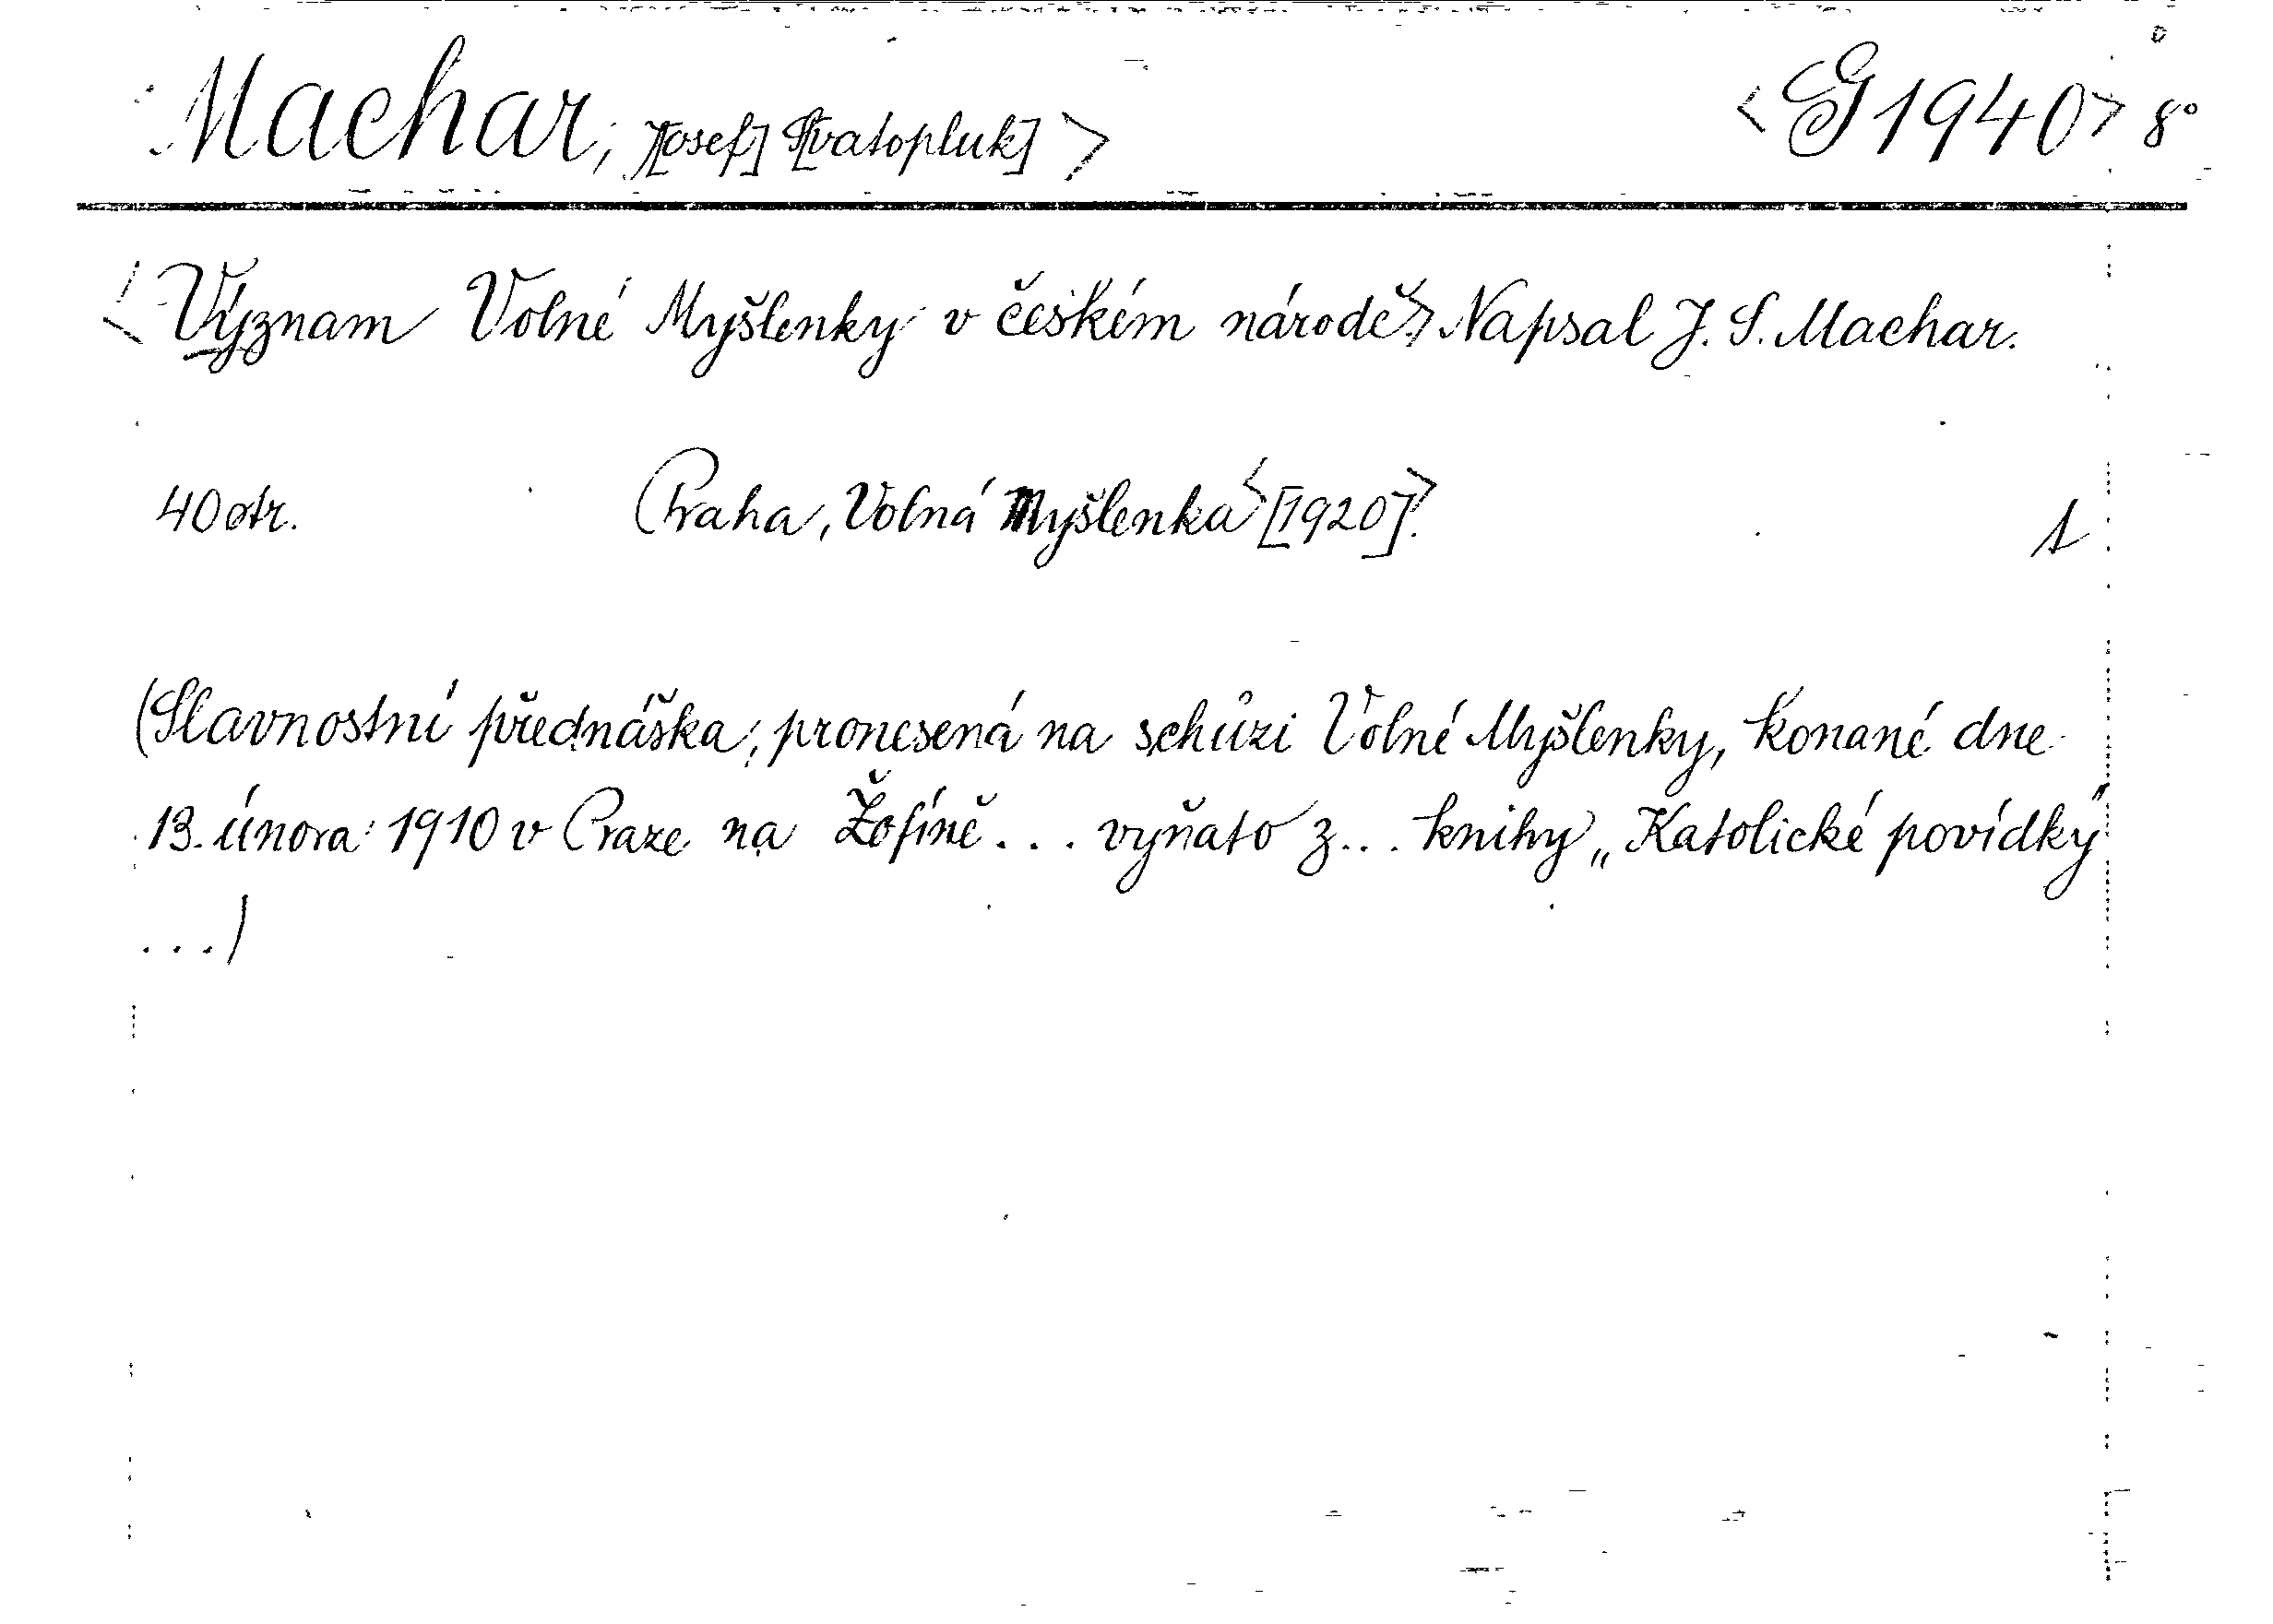 Machar, J[osef] S[vatopluk]> <G 1940> 8°
<Význam Volné Myšlenky v českém národě.> Napsal J. S. Machar.
40 str. Praha, Volná Myšlenka <[1920].> 1
(Slavnostní přednáška, pronesená na schůzi Volné Myšlenky, konané dne
13. února 1910 v Praze na Žofíně... vyňato z... knihy „Katolické povídky"
...)